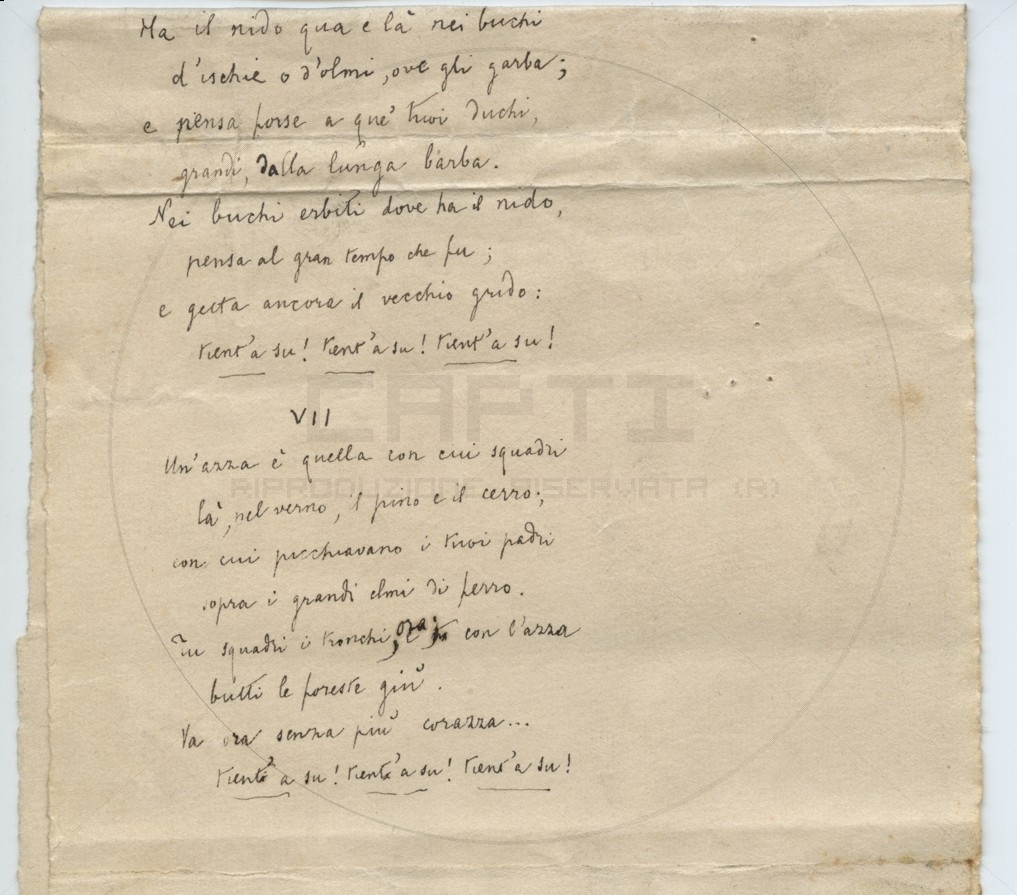 Ha il nido qua e là nei buchi
d'ischie o d'olmi, ove gli garba;
e pensa forse a que' tuoi duchi,
grandi, dalla lunga barba.
Nei buchi erbiti dove ha il nido,
pensa al gran tempo che fu;
e getta ancora il vecchio grido:
tient'a su! tient'a su! tient'a su!
VII
Un'azza è quella con cui squadri
là, nel verno, il pino e il cerro;
con cui picchiavano i tuoi padri
sopra i grandi elmi di ferro.
Tu squadri i tronchi, ora; con l'azza
butti le foreste giù.
Va ora senza più corazza...
tient'a su! tient'a su! tient'a su!
CAPTI
RIPRODUZIONE RISERVATA (R)